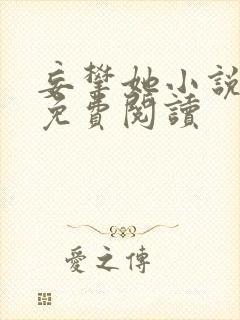 妄攀她小說
免費閱讀
愛之傳